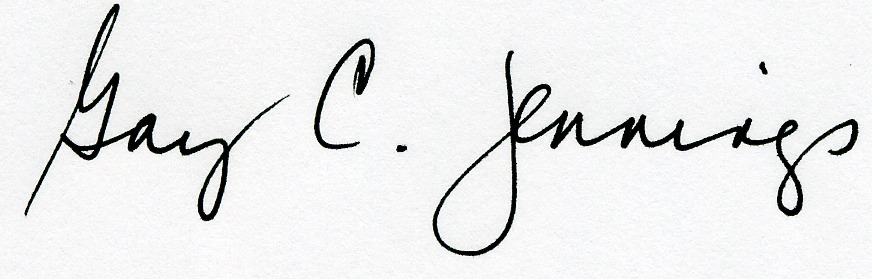 Gary C. Jennings